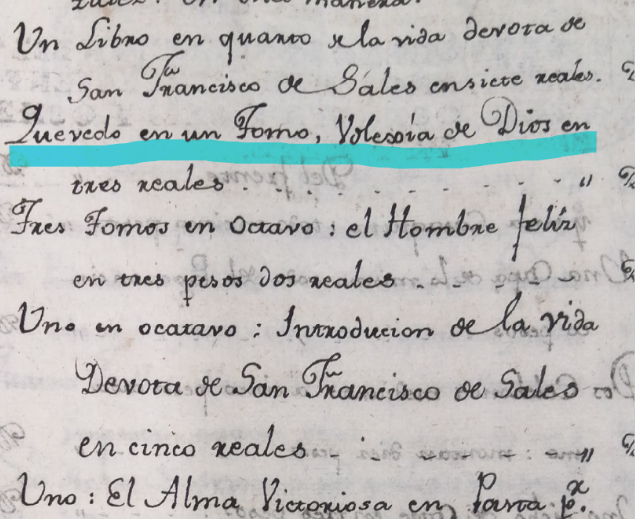 Juiz: en una manera.
Un Libro en quarto de la vida devota de
San Fran.co de Sales en siete reales.
Quevedo en un Tomo, Volexia de Dios en
tres reales . . . . . . . . "
Tres Tomos en Octavo : el Hombre feliz
en tres pesos dos reales . . .
Uno en ocatavo : Introducion de la vida
Devota de San Francisco de Sales
en cinco reales . . . . . . "
Uno : El Alma Victoriosa en Pasta p.r